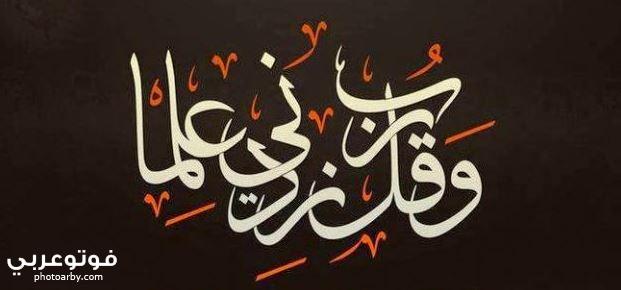 وَقُل رَّبِّ زِدْنِي عِلْمًا
فوتوعربي
photoarby.com